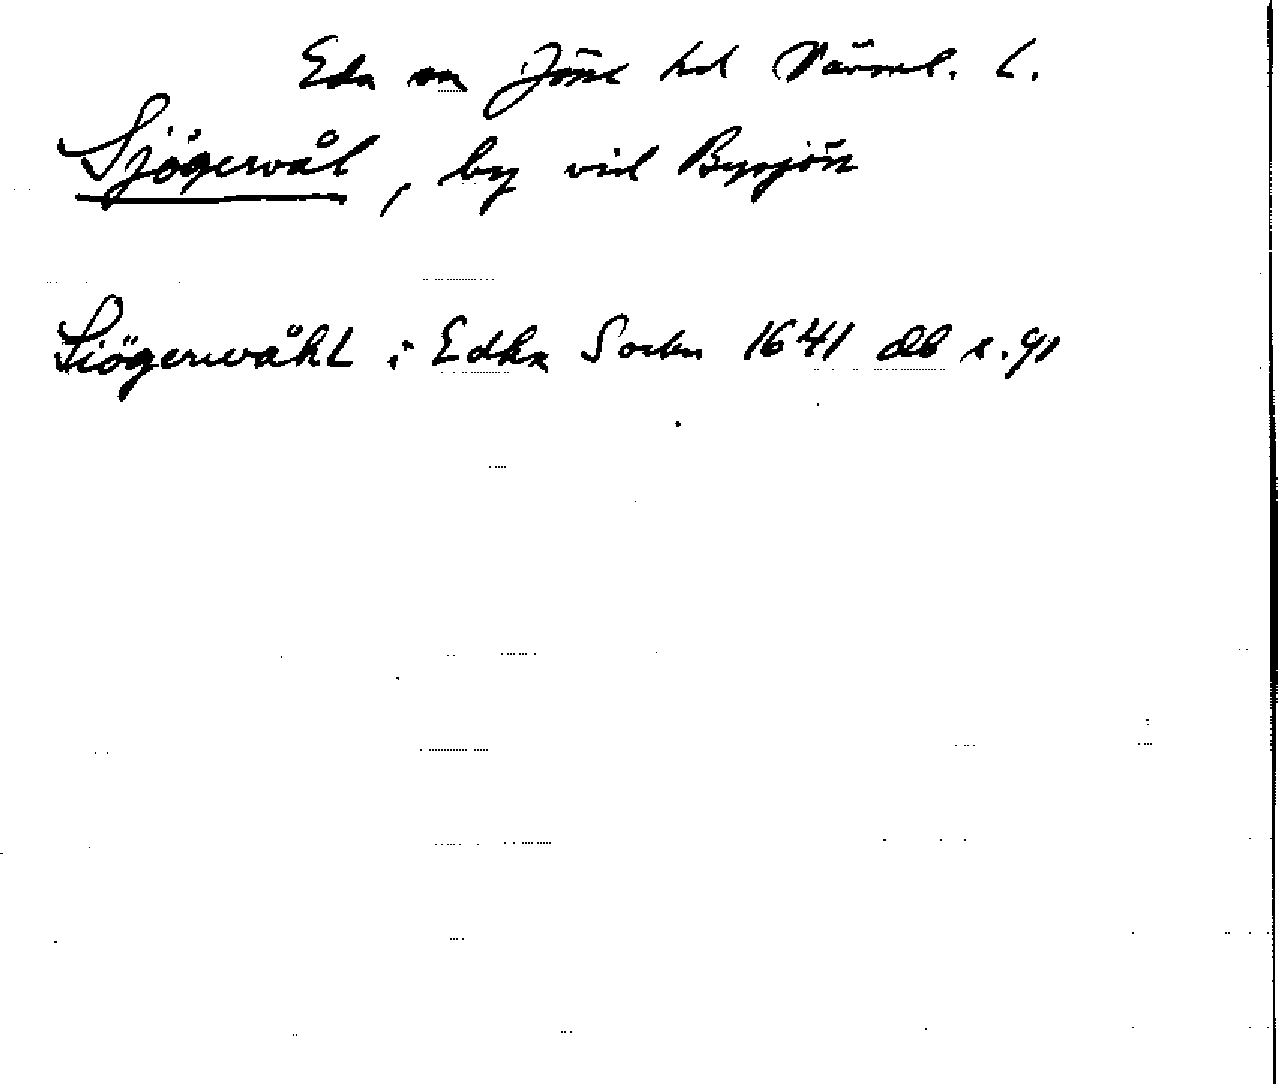 Eda sn Jösse hd Värml. l.
Sjögerwål, by vid Bysjön
Siögerwåhl i Edha Sockn 1641 db s. 91